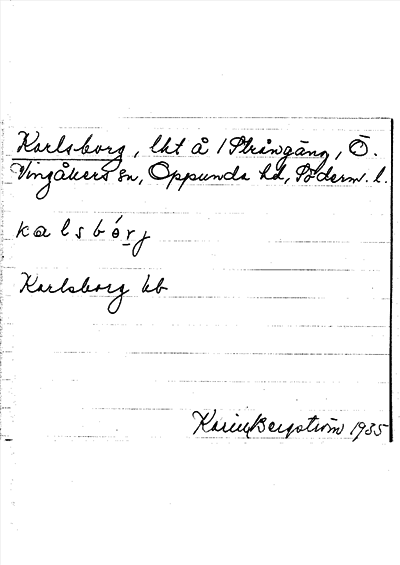 Karlsborg, lht å 1 Strångäng, Ö.
Vingåkers sn, Oppunda hd, Söderm. l.
kalsbórj
Karlsborg kb
Karin Bergström 1935